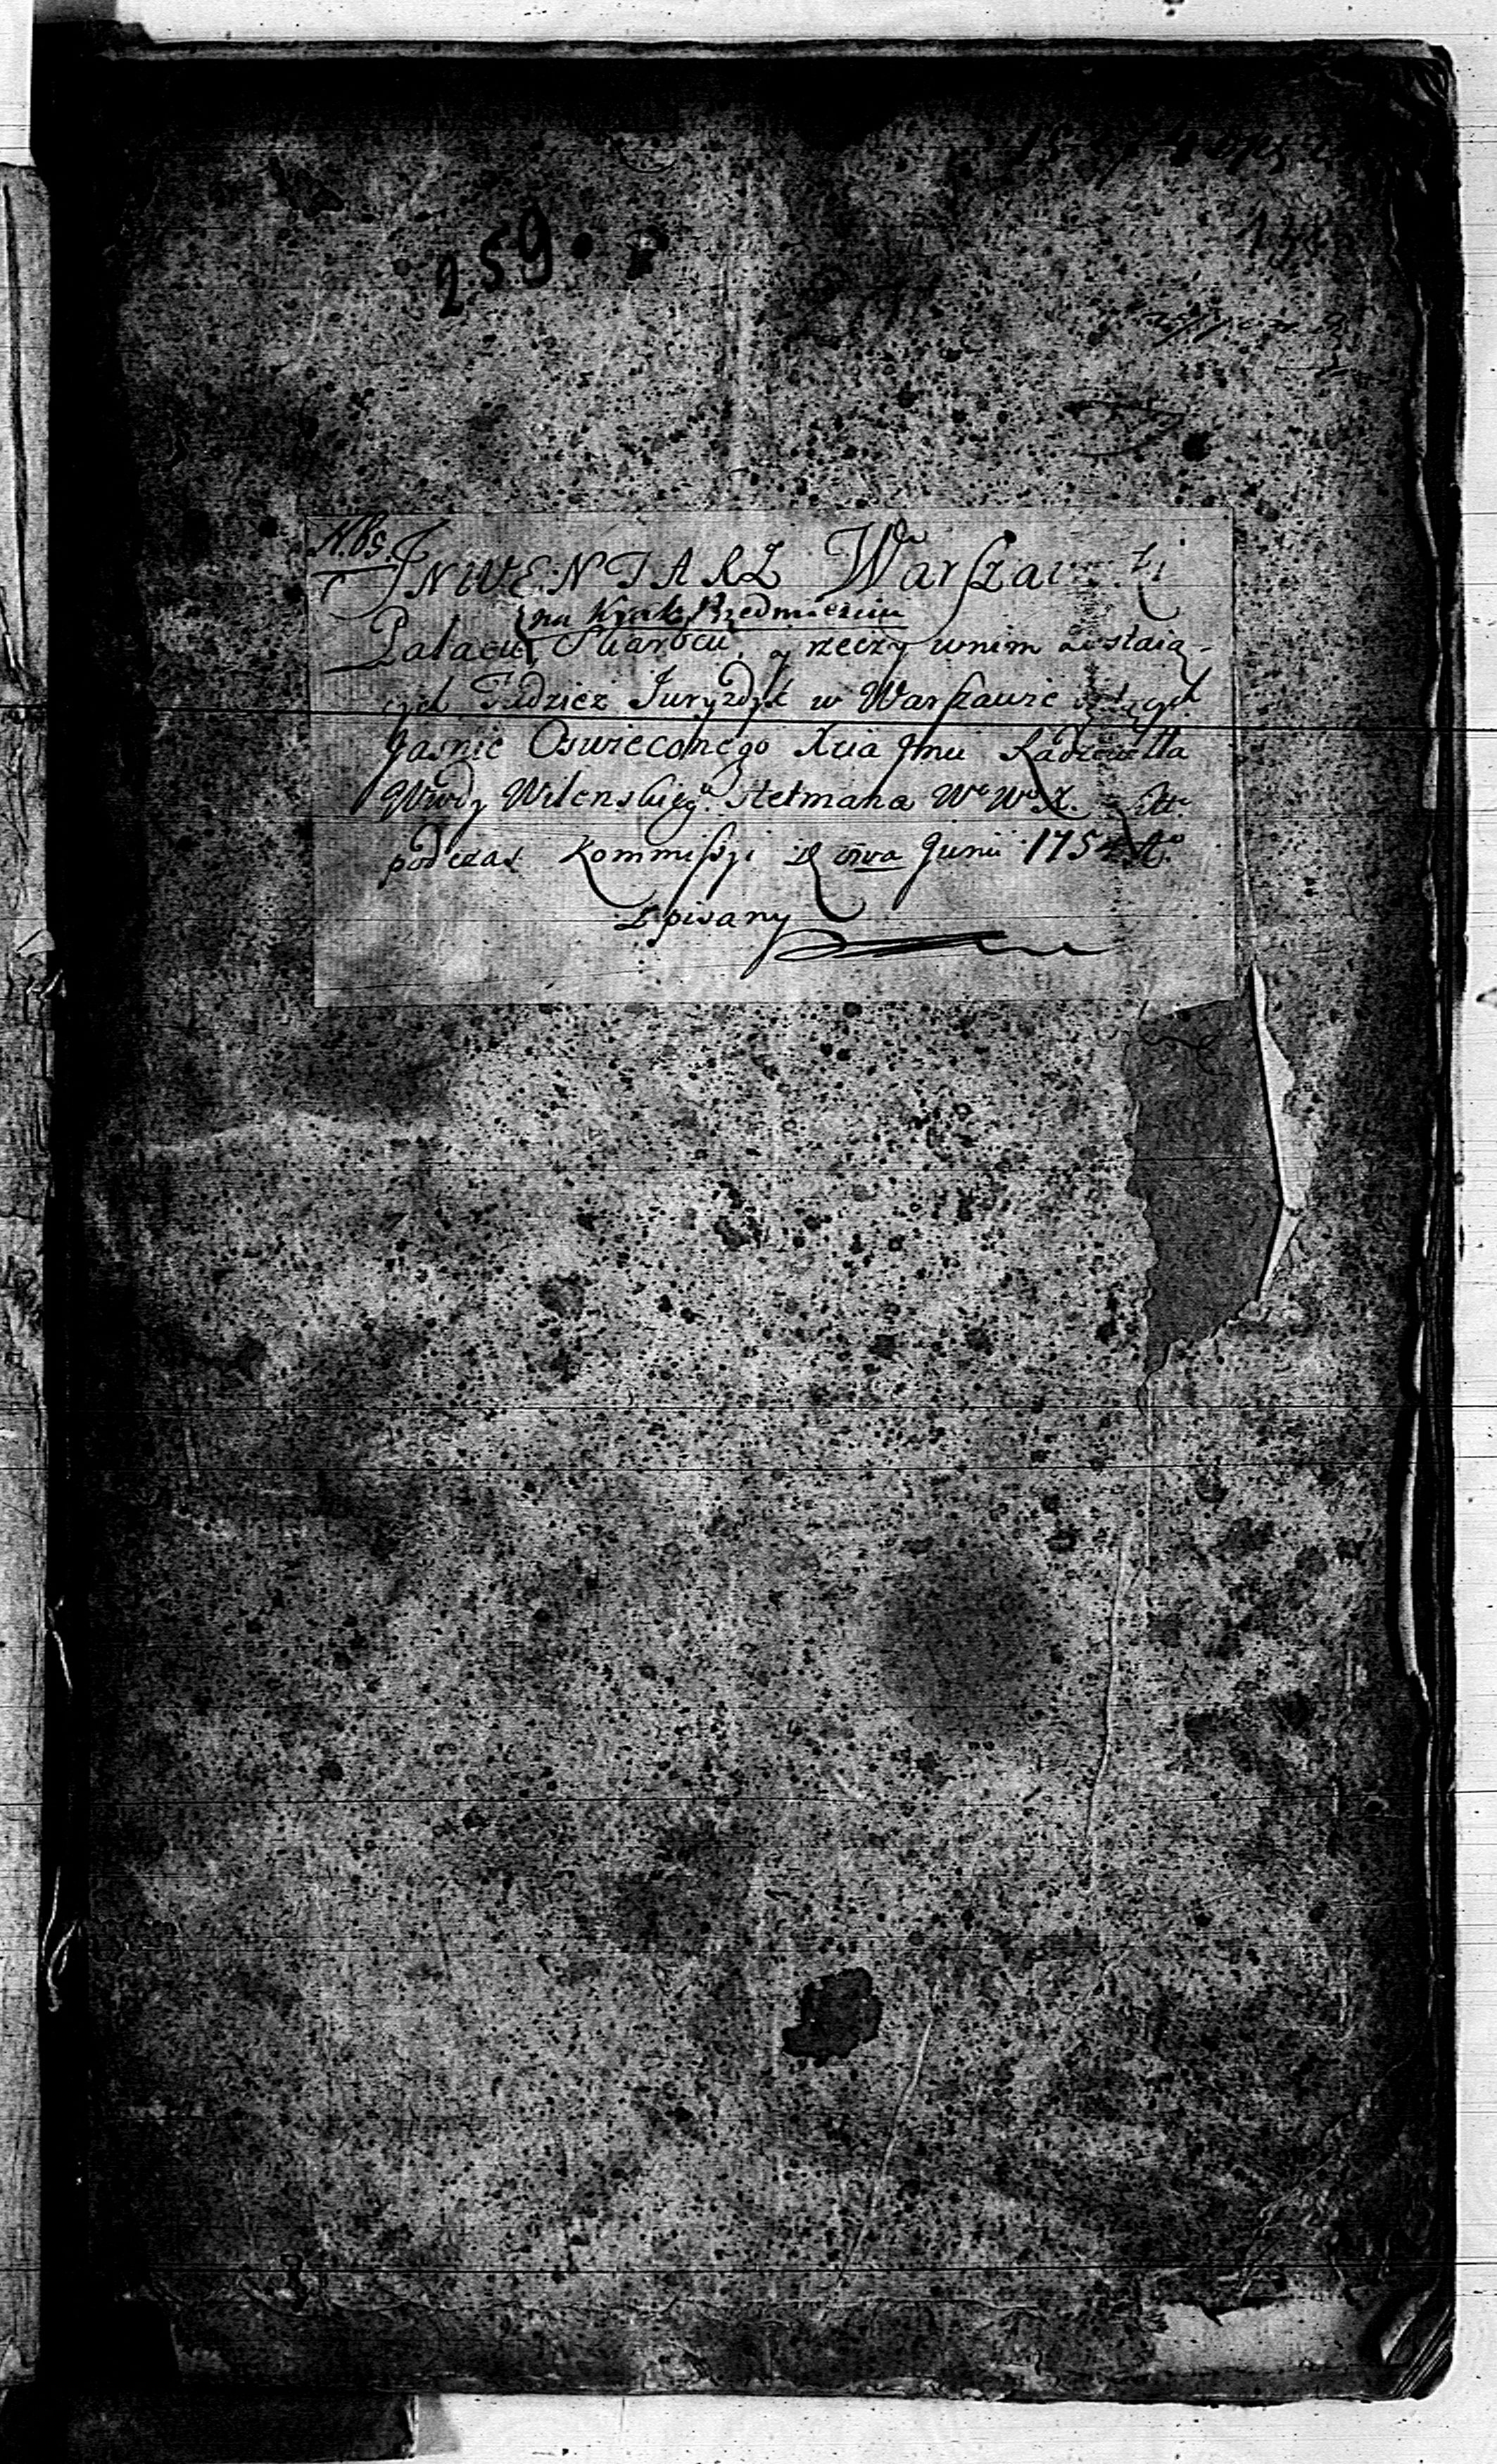 259.
INWENTARZ Warszawski
na Krak. Przedmieściu
Pałacu, Skarbcu, y rzeczy wnim zostaią-
cych Tudziez Iuryzdyk w Warszawie
Jasnie Oswieconego Xcia Jmci Radziwiłła
Wwdy Wilenskieg° Hetmana W° W° X. Litt°
podczas Kommissyi D 1ma Junii 1754
Spisany